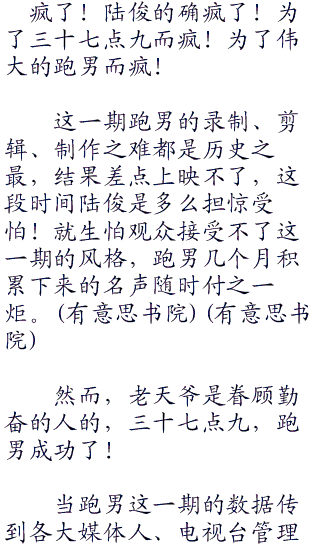 疯了！陆俊的确疯了！为
了三十七点九而疯！为了伟
大的跑男而疯！
这一期跑男的录制、剪
辑、制作之难都是历史之
最，结果差点上映不了，这
段时间陆俊是多么担惊受
怕！就生怕观众接受不了这
一期的风格，跑男几个月积
累下来的名声随时付之一
炬。(有意思书院)(有意思书
院)
然而，老天爷是眷顾勤
奋的人的，三十七点九，跑
男成功了！
当跑男这一期的数据传
到各大媒体人、电视台管理